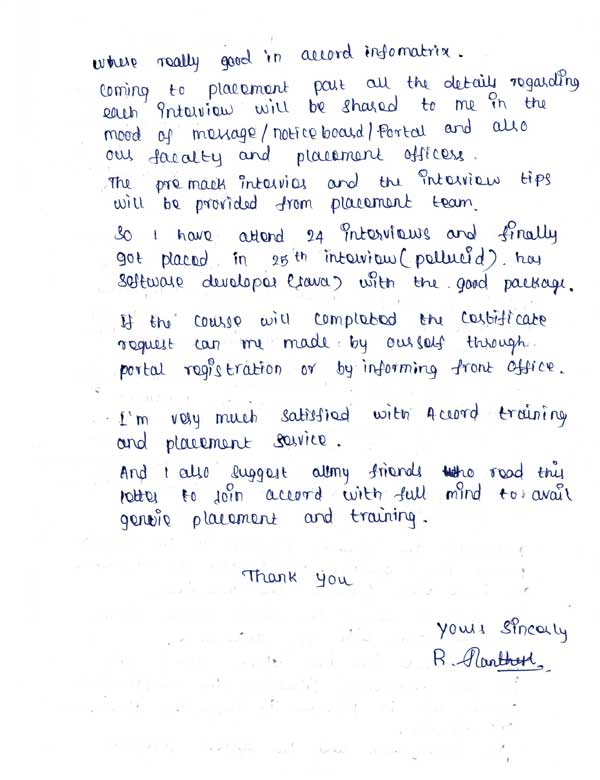 where really good in accord infomatrix.
Coming to placement part all the details regarding
each interview will be shared to me in the
mood of message/noticeboard/Portal and also
our facalty and placement officers.
The pre mack intervios and the interview tips
will be provided from placement team.
So I have attend 24 interviews and finally
got placed in 25th interview (pellucid). has
software developer (Java) with the good package.
If the course will completed the certificate
request can me made by ourself through
portal registration or by informing front office.
I'm very much satisfied with Accord training
and placement service.
And I also suggest all my friends who read this
letter to join accord with full mind to avail
placement and training.
Thank you
Yours Sincerly
R.